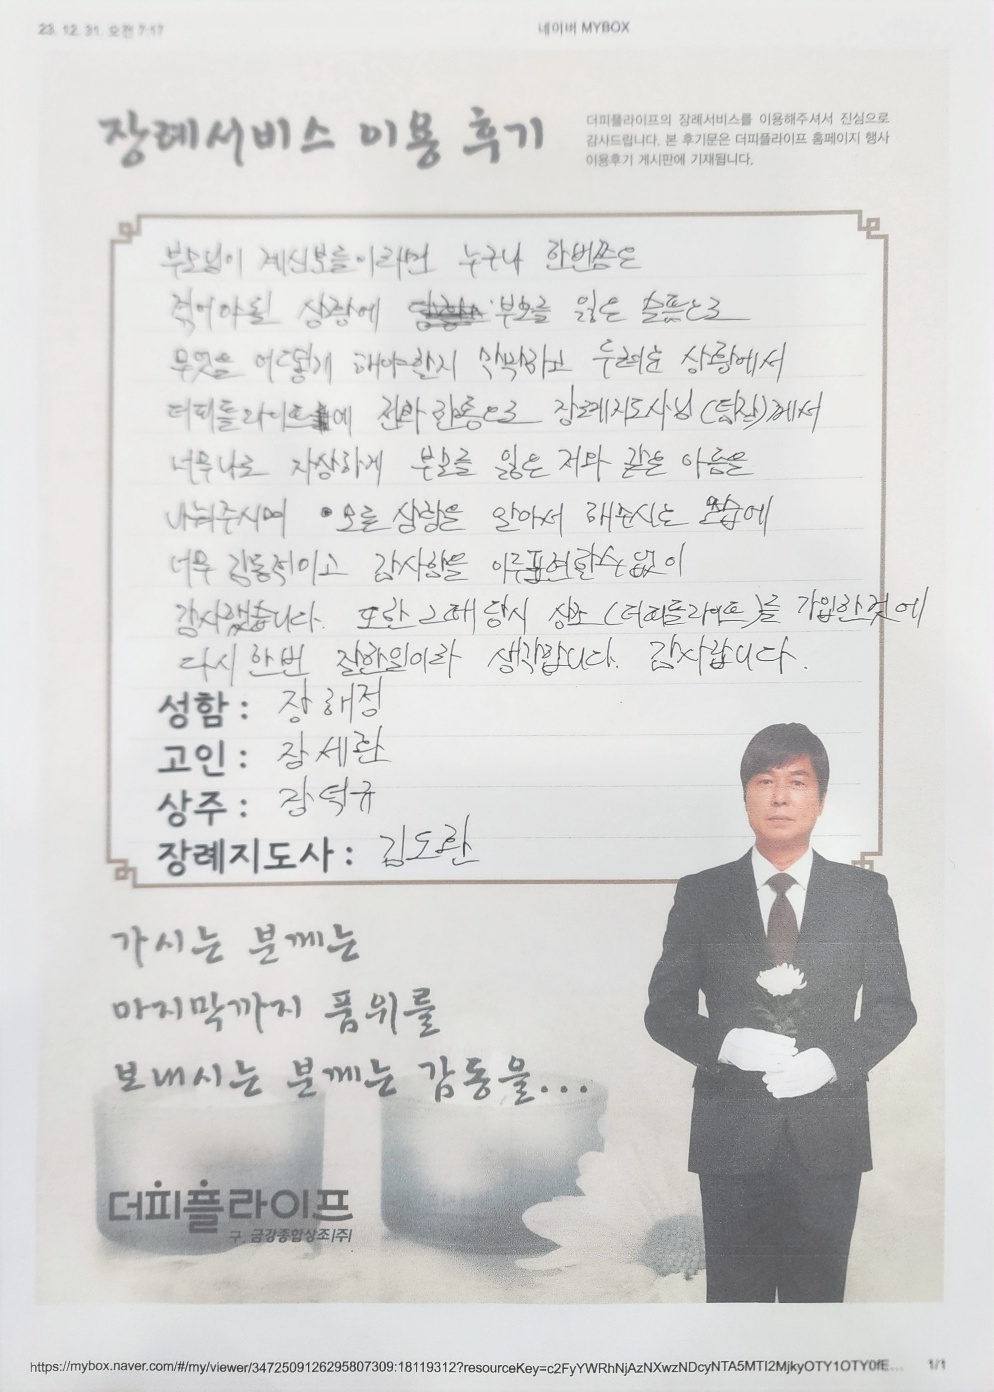 23. 12. 31. 오전 7:17
네이버 MYBOX
장례서비스 이용 후기
더피플라이프의 장례서비스를 이용해주셔서 진심으로
감사드립니다. 본 후기문은 더피플라이프 홈페이지 행사
이용후기 게시판에 기재됩니다.
부모님이 계신분들이라면 누구나 한번쯤은
겪어야될 상황에 부모를 잃은 슬픔으로
무엇을 어떻게 해야할지 막막하고 두려운 상황에서
더피플라이프에 전화 한통으로 장례지도사님 (팀장)께서
너무나도 자상하게 부모를 잃은 저와 같은 아픔을
나눠주시며 모든 상황을 알아서 해주시는 모습에
너무 감동적이고 감사함을 이루표현할수 없이
감사했습니다. 또한 그때 당시 상조 (더피플라이프)를 가입한것에
다시 한번 잘한일이라 생각합니다. 감사합니다.
성함 : 장해정
고인 : 장세환
상주 : 장덕규
장례지도사 : 김도환
가시는 분께는
마지막까지 품위를
보내시는 분께는 감동을...
더피플라이프
구. 금강종합상조(주)
https://mybox.naver.com/#/my/viewer/3472509126295807309:18119312?resourceKey=c2FyYWRhNjAzNXwzNDcyNTA5MTI2MjkyOTY1OTY0fE...
1/1